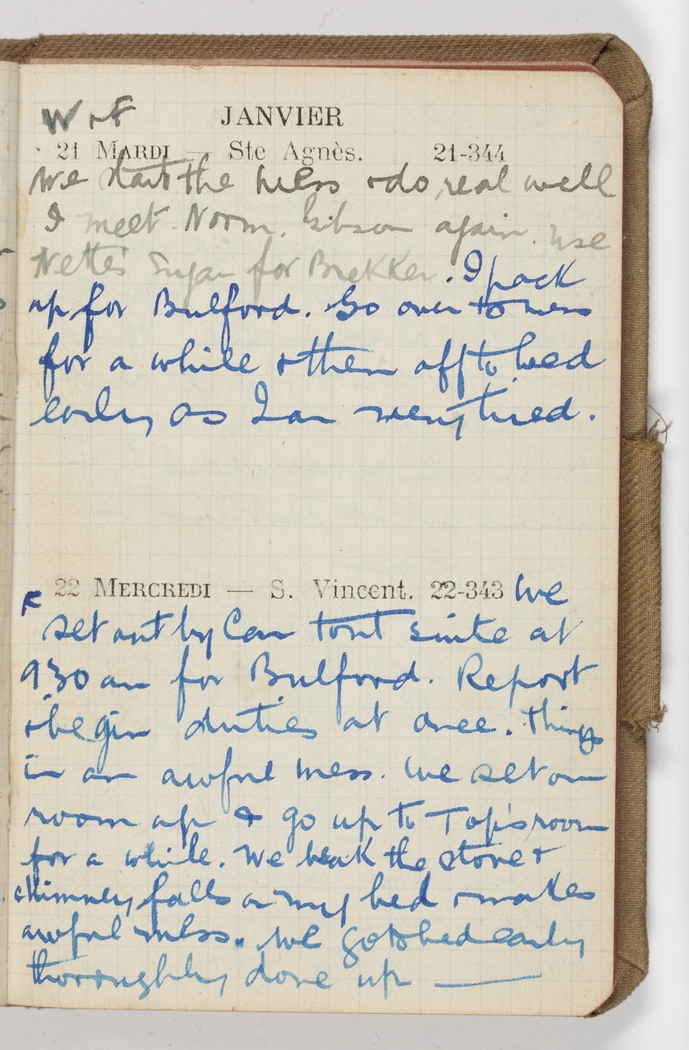 W & F JANVIER
21 MARDI — Ste Agnès. 21-344
We start the mess & do real well
I meet Norm. Gibson again. use
Nettes Sugar for Brekker. I pack
up for Bulford. Go over to mess
for a while & then off to bed
early as I am very tired.
22 MERCREDI — S. Vincent. 22-343 We
F set out by Car tout suite at
930 am for Bulford. Report
& begin duties at once. Things
in an awful mess. We set our
room up & go up to Top's room
for a while. We break the stove &
chimney falls on my bed & makes
awful mess. We go to bed early
thoroughly done up —